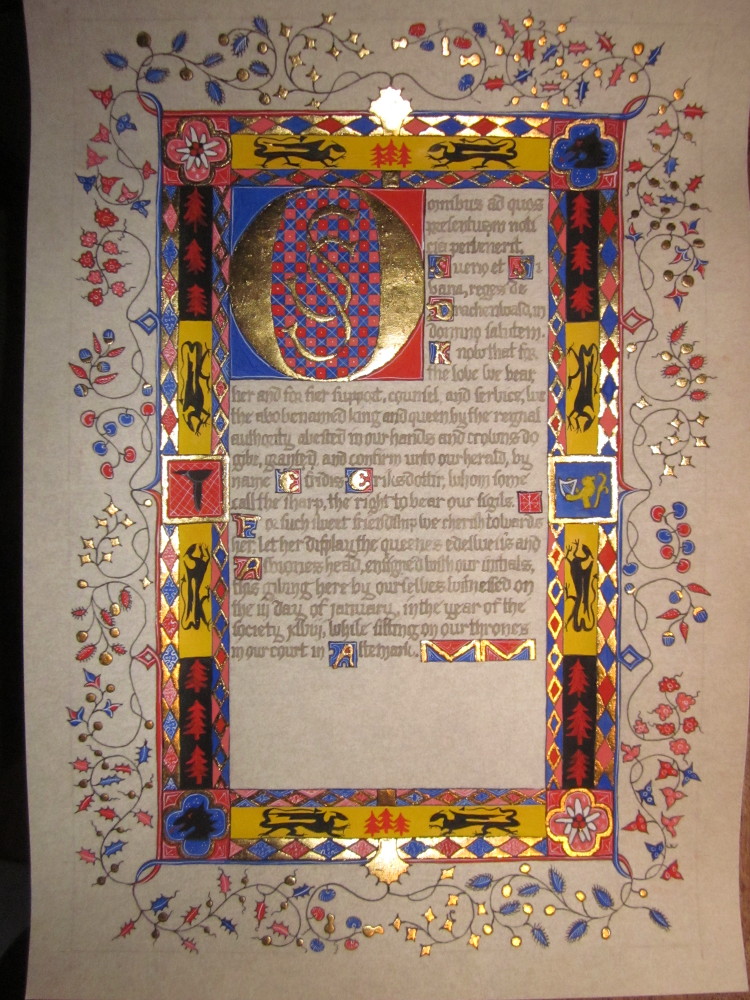 Omnibus ad quos
presentium noti
cia pervenerit,
Sueno et Si
vana, reges de
Drachenwald, in
domino salutem.
Know that for
the love we bear
her and for her support, counsel, and service, we
the above named king and queen by the reignal
authority vested in our hands and crowns do
give, granted, and confirm unto our herald, by
name Eriksdottir, whom some
call the sharp, the right to bear our sigils.
For such sweet friendship we cherish towards
her, let her display the queenes edelweiss and
head, ensigned with our initials,
this giving here by ourselves witnessed on
the iii day of january, in the year of the
society xlviij, while sitting on our thrones
in our court in Attemark.